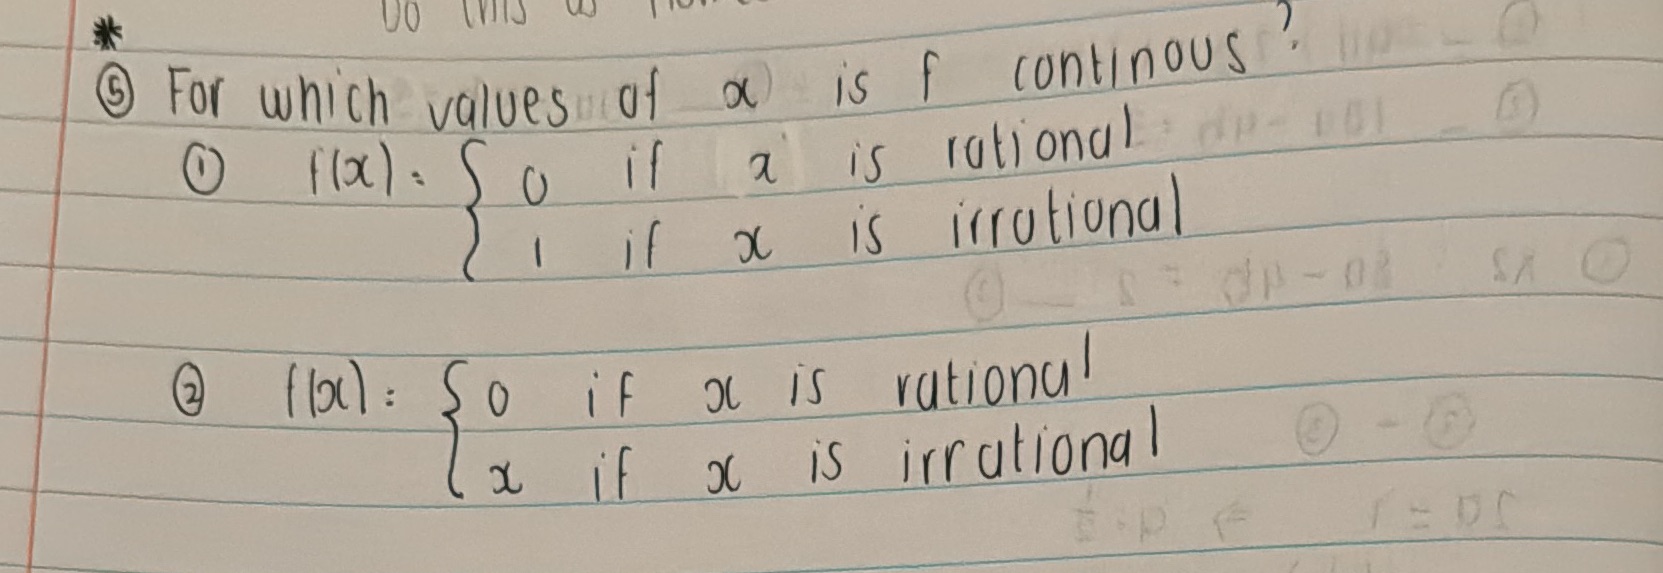 Do this as
*
⑤ For which values of x is f continous?
① f(x) = { 0 if x is rational
1 if x is irrational
② f(x) = { 0 if x is rational
x if x is irrational